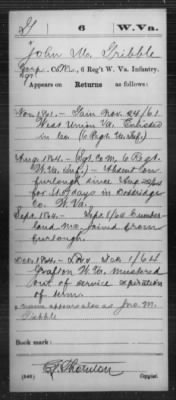 G 6 W.Va.
John M. Gribble
Corp., Co. M, 6 Reg't W. Va. Infantry.
Sgt
Appears on Returns as follows:
Nov 1861.— Gain Nov. 24/61
West Union Va. Enlisted
in Co. (6 Regt Va. Inf.)
Aug. 1864.— (Sgt. Co. M. 6 Regt.
W. Va. Inf.) Absent on
furlough since Aug
for days in Doddridge
Co. W. Va.
Sept. 1864.— Sept. 1/64 Cumber
land Md. joined from
furlough.
Dec. 1864.— Dec 1/64
Grafton W. Va. mustered
out of service expiration
of term.
name appears also as Jno. M.
Gribble
Book mark:
(546) Copyist.